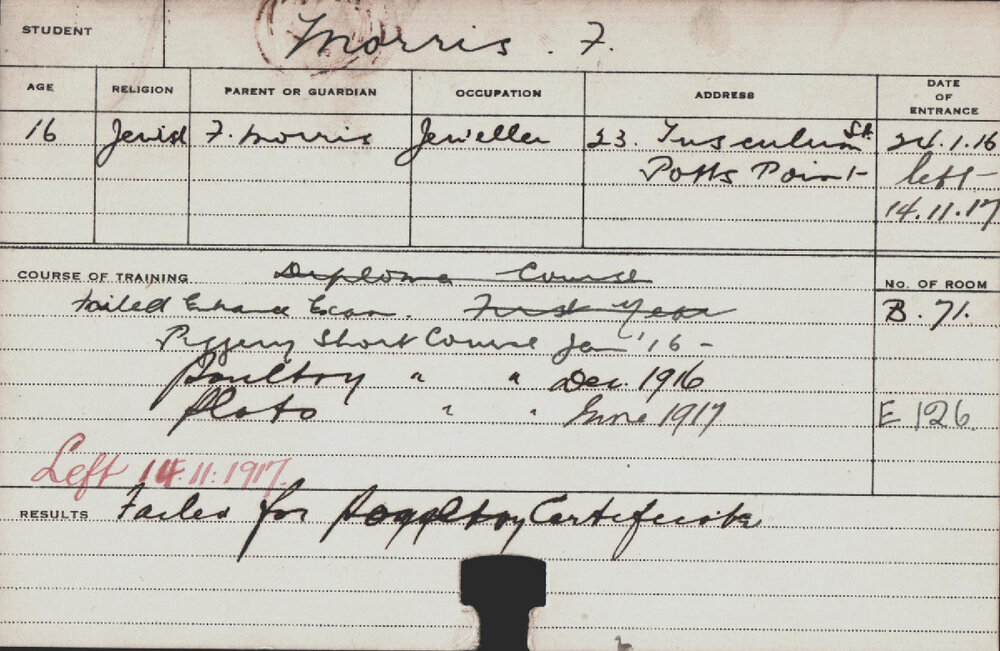 STUDENT Morris. F.
AGE RELIGION PARENT OR GUARDIAN OCCUPATION ADDRESS DATE OF ENTRANCE
16 Jewish F. Morris Jeweller 23. Tusculum St. 24.1.16
Potts Point left
14.11.17
COURSE OF TRAINING Diploma Course No. OF ROOM
Failed Entrance Exam. First Year B. 71.
Piggery Short Course Jan '16 -
Poultry " " Dec. 1916
" " June 1917 E 126
Left 14.11.1917.
RESULTS Failed for Poultry Certificate